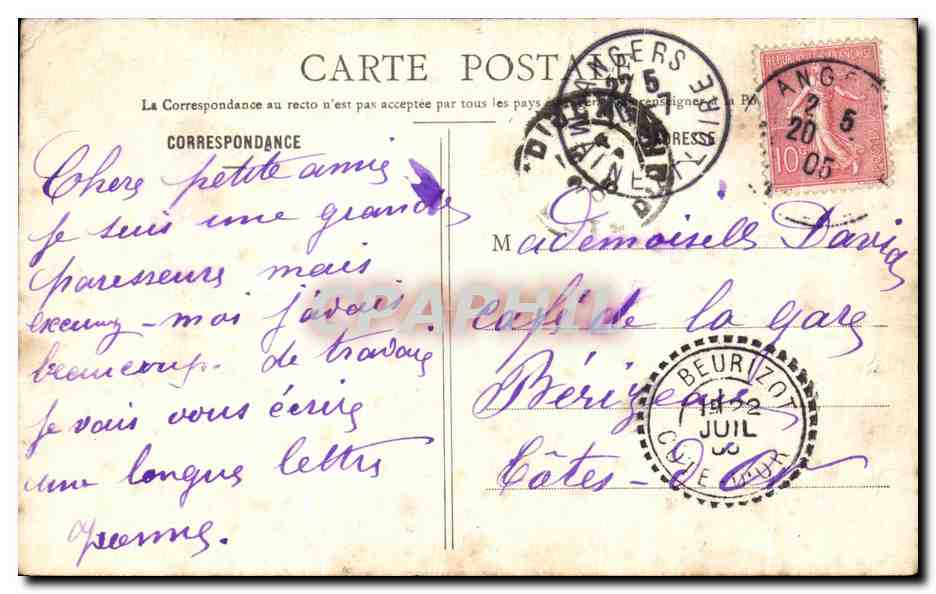 CARTE POSTALE
La Correspondance au recto n'est pas acceptée par tous les pays renseigner à la Po
CORRESPONDANCE
ADRESSE
Chere petite amie
Je suis une grande
paresseuse mais
excusez-moi j'avais
beaucoup de travail
je vais vous écrire
une longue lettre
Mademoiselle David
café de la gare
Côtes-d'Or
ANGERS
22 5
MAINE ET LOIRE
REPUBLIQUE FRANÇAISE
10
ANGE
2 5
20
05
BEURIZOT
22
JUIL
COTE D'OR
CPAPHIL